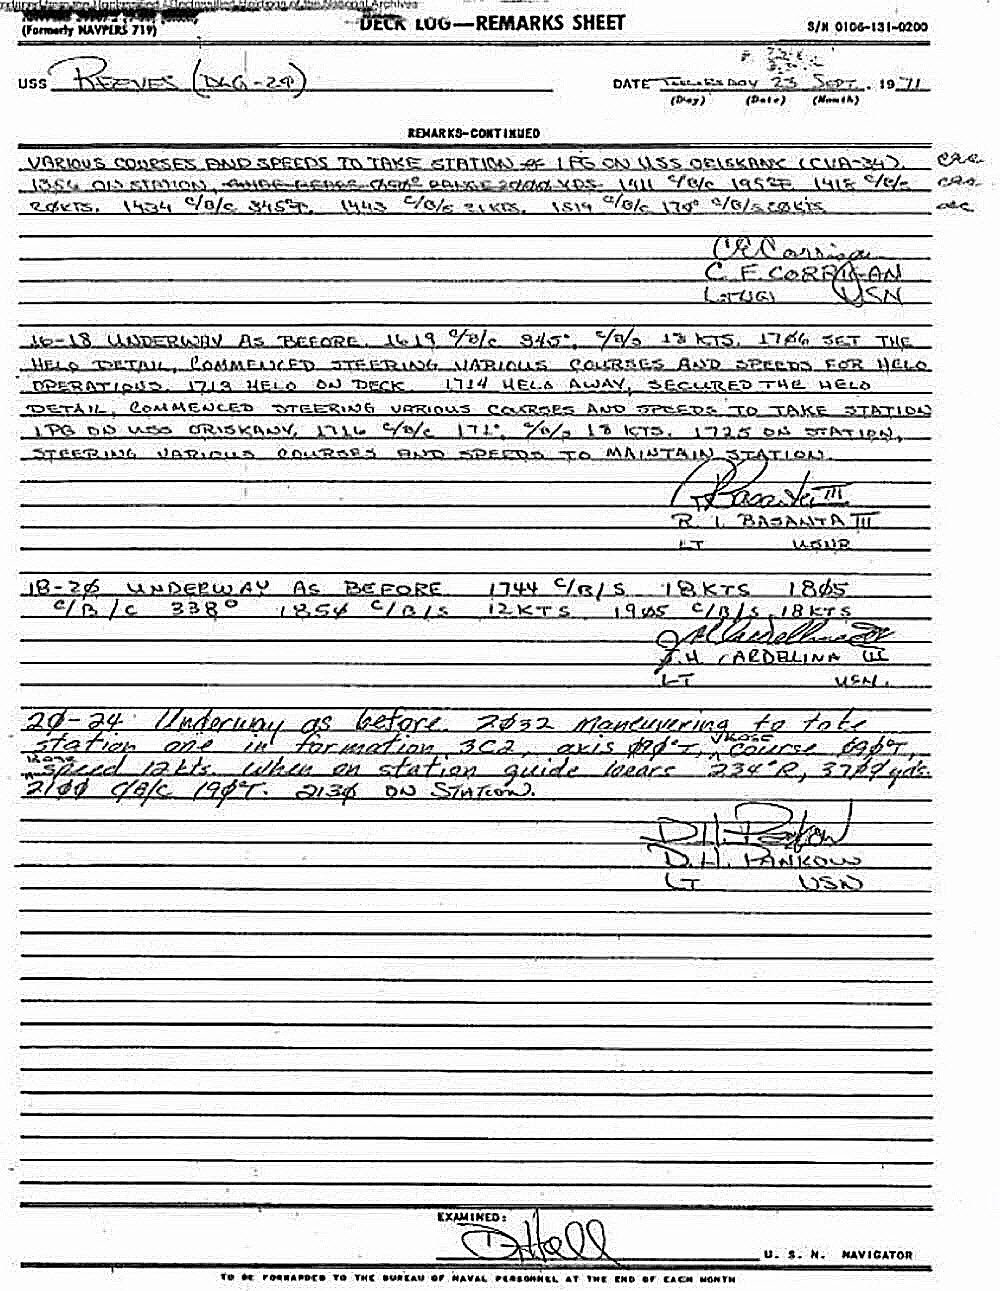 (Formerly NAVPERS 719)
DECK LOG—REMARKS SHEET
S/N 0106-131-0200
USS REEVES (DLG-24)
DATE THURSDAY 23 SEPT. 1971
(Day) (Date) (Month)
REMARKS-CONTINUED
VARIOUS COURSES AND SPEEDS TO TAKE STATION 1 PG ON USS ORISKANY (CVA-34).
ON STATION, RANGE 2000 YDS. 1411 C/B/C 195°T 1418 C/B/C
20KTS. 1434 C/B/C 345°T. 1443 C/B/S 21 KTS. 1519 C/B/C 170° C/B/S 20KTS
C. E. CORRIGAN
LTJG USN
16-18 UNDERWAY AS BEFORE. 1619 C/B/C 345°, C/B/S 18 KTS. 1706 SET THE
HELO DETAIL, COMMENCED STEERING VARIOUS COURSES AND SPEEDS FOR HELO
OPERATIONS. 1713 HELO ON DECK 1714 HELO AWAY, SECURED THE HELO
DETAIL, COMMENCED STEERING VARIOUS COURSES AND SPEEDS TO TAKE STATION
1PG ON USS ORISKANY. 1716 C/B/C 171°, C/B/S 18 KTS. 1725 ON STATION,
STEERING VARIOUS COURSES AND SPEEDS TO MAINTAIN STATION.
R Basanta III
R. I. BASANTA III
LT USNR
18-2Ø UNDERWAY AS BEFORE 1744 C/B/S 18KTS 18Ø5
C/B/C 338° 185Ø C/B/S 12KTS 19Ø5 C/B/S 18KTS
J.H. CARDELINA III
LT USN.
2Ø-24 Underway as before. 2Ø32 Maneuvering to take
station one in formation 3C2, axis Ø9Ø°T, course Ø9Ø°T,
speed 12kts. When on station guide bears 234°R, 37ØØ yds.
21ØØ C/B/C 19Ø°T. 213Ø ON STATION.
D.H. Pankow
D.H. PANKOW
LT USN
EXAMINED:
D Hall
U. S. N. NAVIGATOR
TO BE FORWARDED TO THE BUREAU OF NAVAL PERSONNEL AT THE END OF EACH MONTH